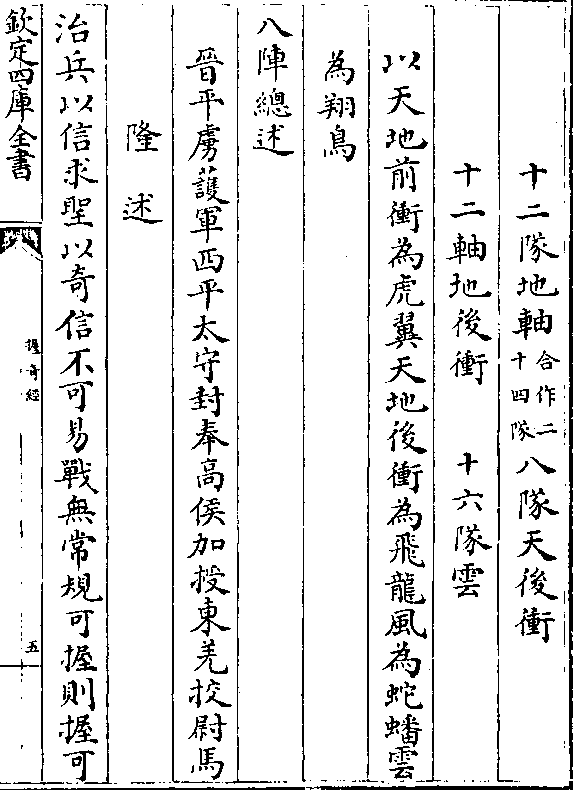 十二隊地軸合作二十四隊八隊天後衝
十二軸地後衝　十六隊雲
以天地前衝為虎翼天地後衝為飛龍風為蛇蟠雲
為翔鳥
八陣總述
晉平虜護軍西平太守封奉高侯加授東羌挍尉馬
隆述
治兵以信求聖以奇信不可易戰無常規可握則握可
欽定四庫全書
握奇經
五